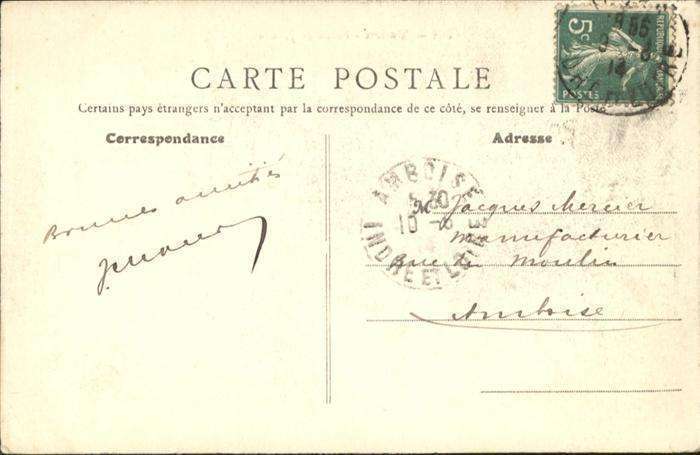 CARTE POSTALE
Certains pays étrangers n'acceptant par la correspondance de ce côté, se renseigner à la Poste
Correspondance
Adresse
5c
POSTES
14
Bonnes amitiés
AMBOISE
30
10 -8
INDRE ET LOIRE
M Jacques Mercier
Manufacturier
Rue du Moulin
Amboise